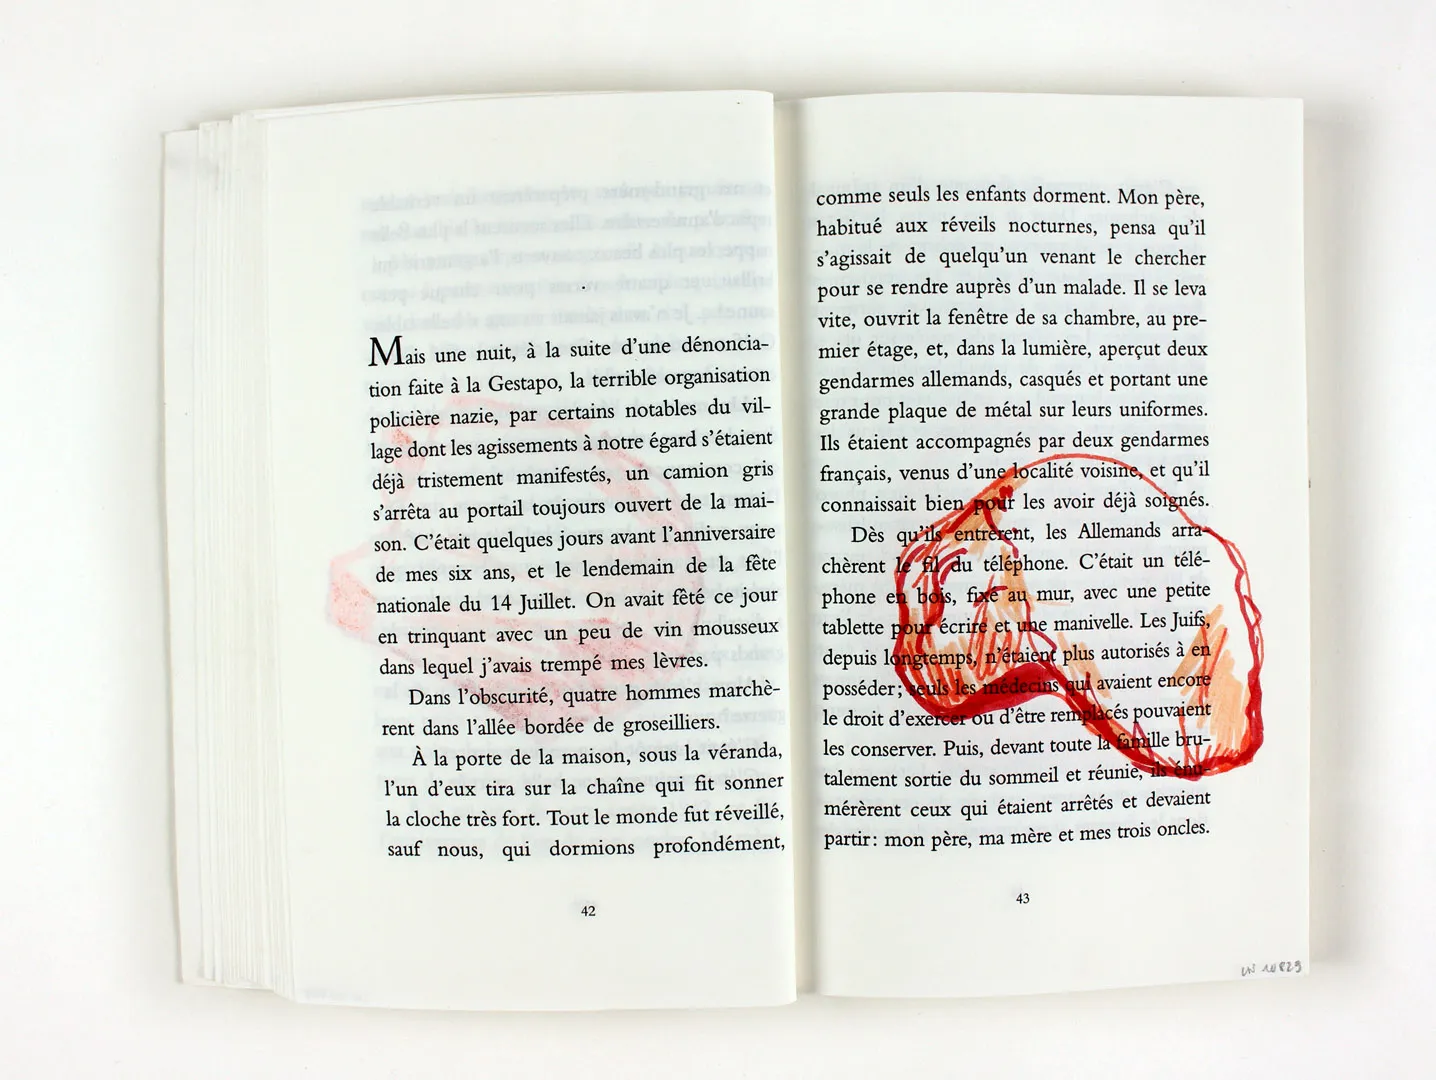 Mais une nuit, à la suite d'une dénoncia-
tion faite à la Gestapo, la terrible organisation
policière nazie, par certains notables du vil-
lage dont les agissements à notre égard s'étaient
déjà tristement manifestés, un camion gris
s'arrêta au portail toujours ouvert de la mai-
son. C'était quelques jours avant l'anniversaire
de mes six ans, et le lendemain de la fête
nationale du 14 Juillet. On avait fêté ce jour
en trinquant avec un peu de vin mousseux
dans lequel j'avais trempé mes lèvres.
Dans l'obscurité, quatre hommes marchè-
rent dans l'allée bordée de groseilliers.
À la porte de la maison, sous la véranda,
l'un d'eux tira sur la chaîne qui fit sonner
la cloche très fort. Tout le monde fut réveillé,
sauf nous, qui dormions profondément,
42
comme seuls les enfants dorment. Mon père,
habitué aux réveils nocturnes, pensa qu'il
s'agissait de quelqu'un venant le chercher
pour se rendre auprès d'un malade. Il se leva
vite, ouvrit la fenêtre de sa chambre, au pre-
mier étage, et, dans la lumière, aperçut deux
gendarmes allemands, casqués et portant une
grande plaque de métal sur leurs uniformes.
Ils étaient accompagnés par deux gendarmes
français, venus d'une localité voisine, et qu'il
connaissait bien pour les avoir déjà soignés.
Dès qu'ils entrèrent, les Allemands arra-
chèrent le fil du téléphone. C'était un télé-
phone en bois, fixé au mur, avec une petite
tablette pour écrire et une manivelle. Les Juifs,
depuis longtemps, n'étaient plus autorisés à en
posséder ; seuls les médecins qui avaient encore
le droit d'exercer ou d'être remplacés pouvaient
les conserver. Puis, devant toute la famille bru-
talement sortie du sommeil et réunie, ils énu-
mérèrent ceux qui étaient arrêtés et devaient
partir : mon père, ma mère et mes trois oncles.
43